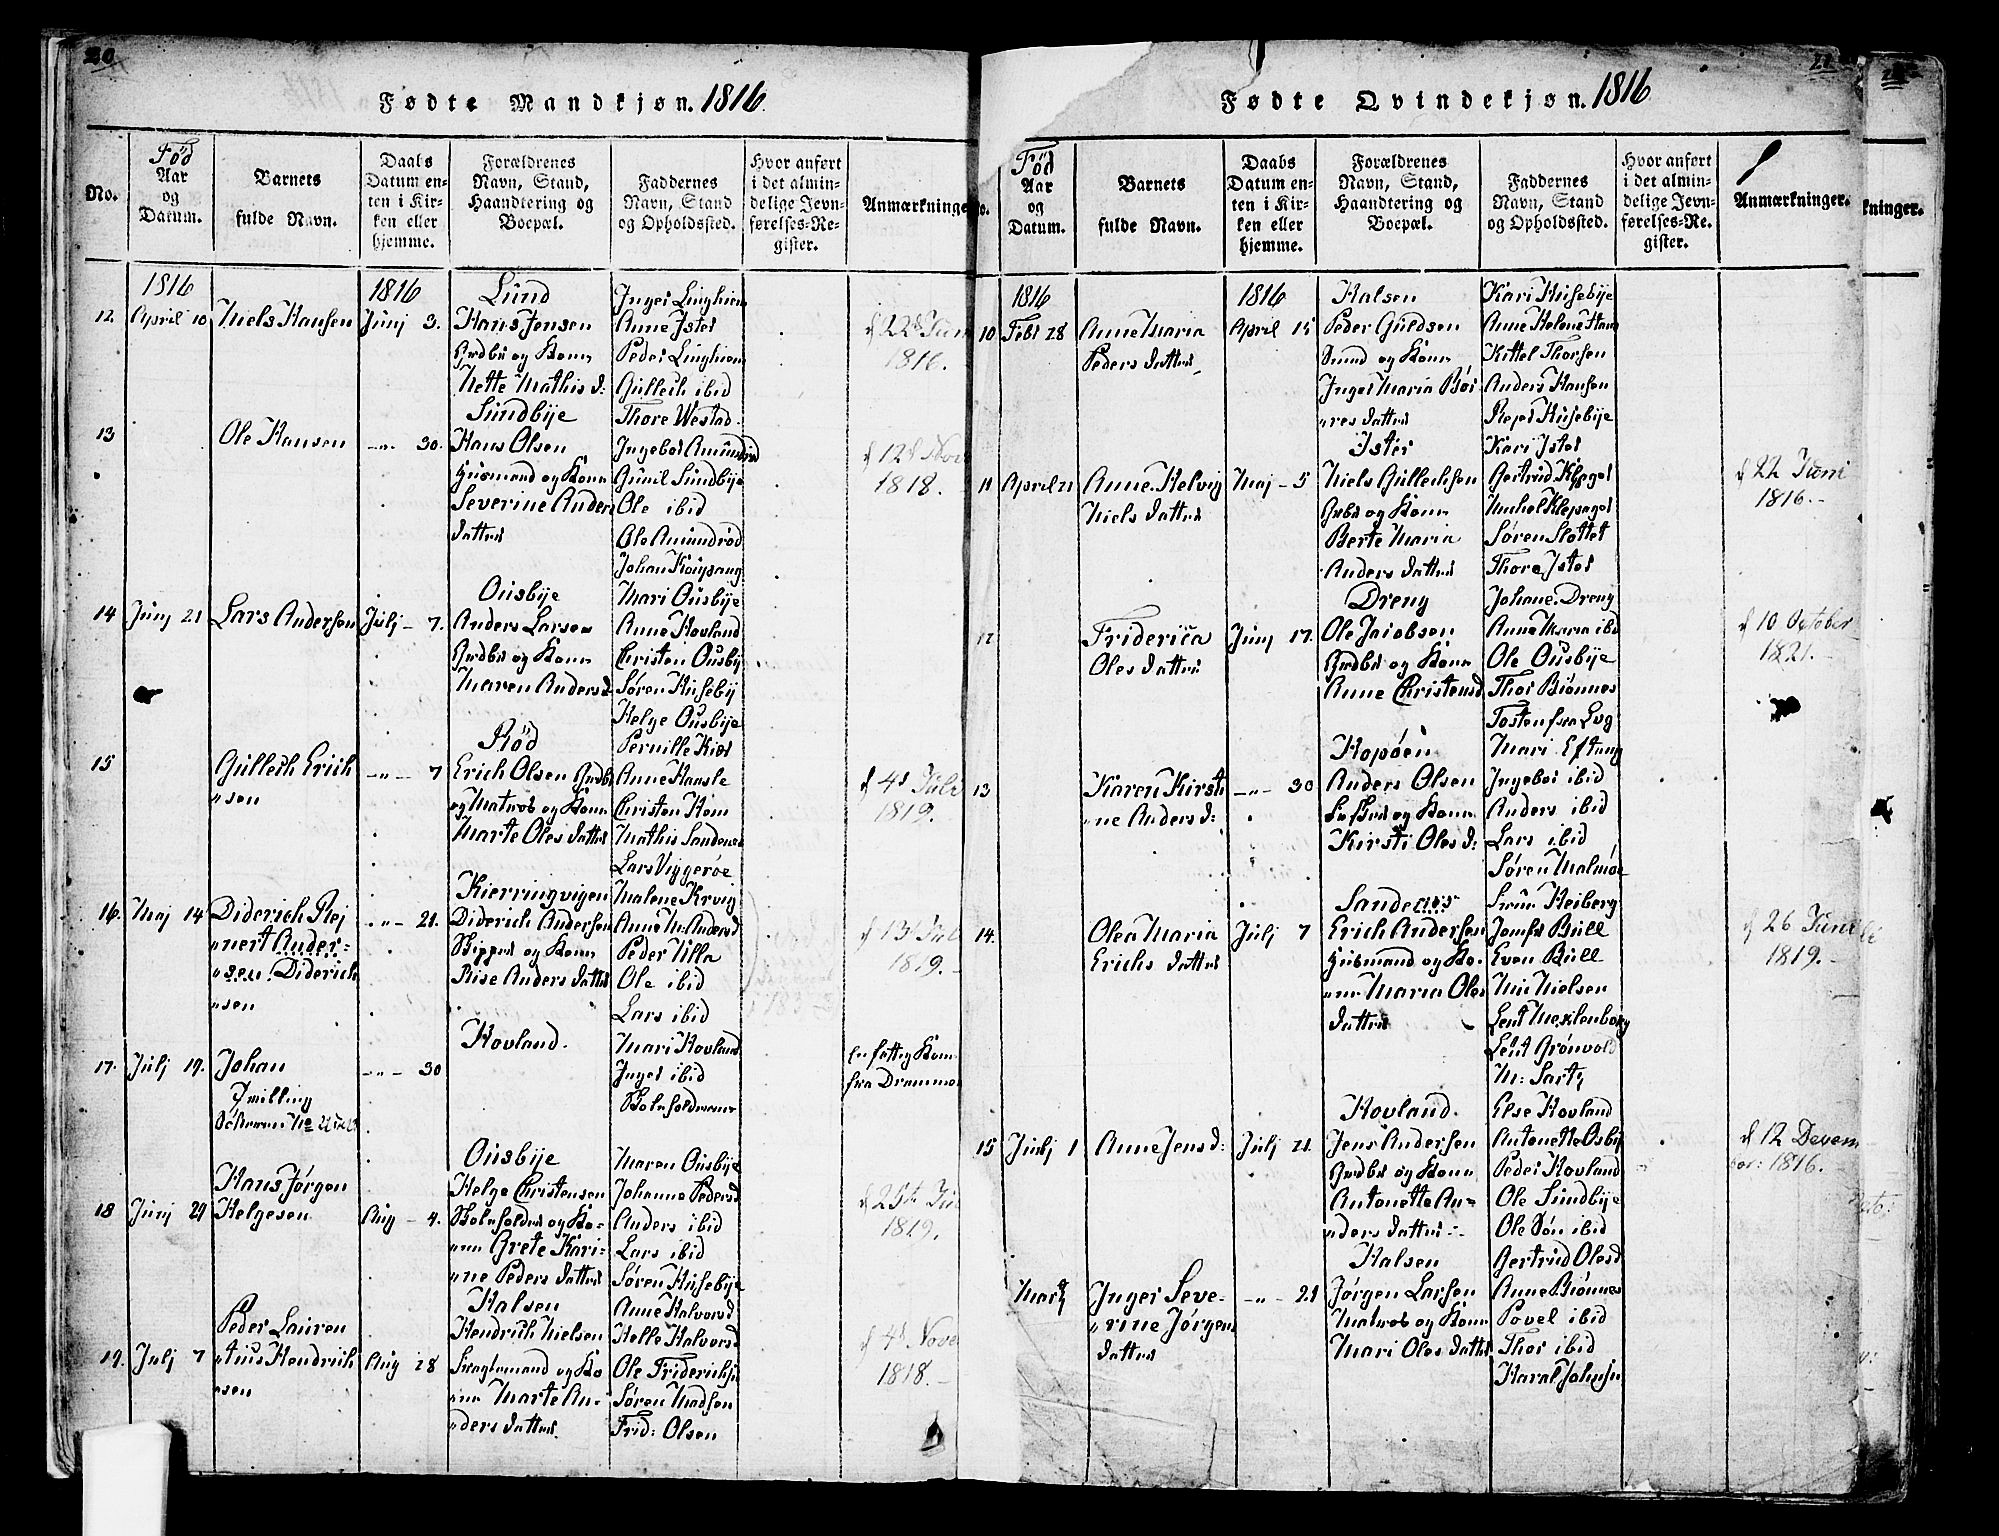 20
Fødte Mandkjøn. 1816.
No.
Fød
Aar
og
Datum.
Barnets
fulde Navn.
Daabs
Datum en-
ten i Kir-
ken eller
hjemme.
Forældrenes
Navn, Stand,
Haandtering og
Boepæl.
Faddernes
Navn, Stand
og Opholdssted.
Hvor anført
i det almin-
delige Jevn-
førelses-Re-
gister.
Anmærkninge
1816
1816
12
April 10
Niels Hansen
Junj 3.
Lund
Hans Jensen
Grdbr og Kone
Nette Mathis d:
Inger Linghiem
Anne Ister
Peder Linghiem
Gullech ibid
Thore Westad
1816.
13
Ole Hansen
-"- 30.
Sundbye
Hans Olsen
Huusmand og Kone
Severine Anders
datter
Ingebor Amundrød
Gunil Sundbye
Ole ibid
Ole Amundrød
Johan
d 12t Nov
1818.
14
Junj 21
Lars Andersen
Julj - 7.
Ousbye
Anders Larsen
Grdbr og Kone
Maren Andersd
Mari Ousbye
Anne Hovland
Christen Ousby
Søren Huseby
Helge Ousbye
15
Gullech Erich
"sen
-"- 7
Rød
Erich Olsen Grdbr
og Matros og Kone
Marte Oles datter
Pernille
Anne Haasle
Christen Hem
Mathis Sandenes
Lars Viggerøe
d 4d Juli
1819.
16.
Maj 14
Diderich Rej
"nert Ander=
"sen. Diderich
"sen
-"- 21.
Kierringvigen
Diderich Andersen
Skipper og Kone
Anders datter
Malene Krvig
Anne M: Andersd
Peder Ulla
Ole ibid
Lars ibid
1819.
17.
Julj 19.
Johan
-"- 30
Hovland.
Mari Hovland
Inger ibid
en fattig Kone
fra Drammen
18
Junj 29
Hans Jørgen
Helgesen
Aug - 4.
Ousbye
Helge Christensen
og Ko-
"ne Grete Kari-
"ne Peders datter
Maren Ousbye
Johanne Pedersd
Anders ibid
Lars ibid
Søren Husebye
1819.
19.
Julj 7
Peder Lauren
"tius Hendrich
"sen
Aug 18
Halsen
Hendrich Nielsen
og Ko
"ne Marte An-
"ders datter
Anne Halvorsd
Helle Halvorsd
Ole Friderichsen
Søren Madsen
Frid: Olsen
d 4d Nove
1818.-
21
Fødte Qvindekjøn. 1816
o.
Fød
Aar
og
Datum.
Barnets
fulde Navn.
Daabs
Datum en-
ten i Kir-
ken eller
hjemme.
Forældrenes
Navn, Stand,
Haandtering og
Boepæl.
Faddernes
Navn, Stand
og Opholdssted.
Hvor anført
i det almin-
delige Jevn-
førelses-Re-
gister.
Anmærkninger.
kninger.
1816
1816
10
Febr 28
Anne Maria
Peders datter
April 15
Halsen
Peder Guldsen
og Kone
Inger Maria Bør
"res datter
Kari Husebye
Anne Helene
Kittel Thorsen
Anders Hansen
Husebye
11
April 21
Anne Helvig
Niels datter
Maj - 5
Ister
Niels Gullechsen
Grdbr og Kone
Berte Maria
Anders datter
Kari Ister
Gertrud Klepager
Michel Klepager
Søren Slottet
Thore Ister
d 22 Juni
1816.-
12
Friderica
Oles datter
Junj 17.
Dreng
Ole Jacobsen
Grdbr og Kone
Anne Christensd
Johane Dreng
Anne Maria ibid
Ole Ousbye
Thor Biønnes
d 10 October
1821.-
13
Karen Kirsti
"ne Anders d:
-"- 30
Hopøen
Anders Olsen
og Kone
Kirsti Oles d:
Mari Eftang
Ingebor ibid
Anders ibid
Lars ibid
Søren Malmøe
14.
Olea Maria
Erichs datter
Julj 7
Sandenes
Erich Andersen
Huusmand og Ko-
"ne Maria Oles
datter
Heiberg
Jomfr Bull
Even Bull
Nielsen
Leut Meklenborg
Leut Grønvold
d 26 Juni
1819.-
15
Julj 1
Anne Jens d:
Julj 21
Hovland.
Jens Andersen
Grdbr og Kone
Antonette An-
"ders datter
Else Hovland
Antonette Osby
Peder Hovland
Ole Sundbye
Ole Søn ibid
d 12 Decem
ber: 1816.-
Marts
Inger Seve-
"rine Jørgen
datter
-"- 21
Halsen
Jørgen Larsen
Matros og Kone
Mari Oles datter
Gertrud Olesd
Anne Biønnes
Povel ibid
Thor ibid